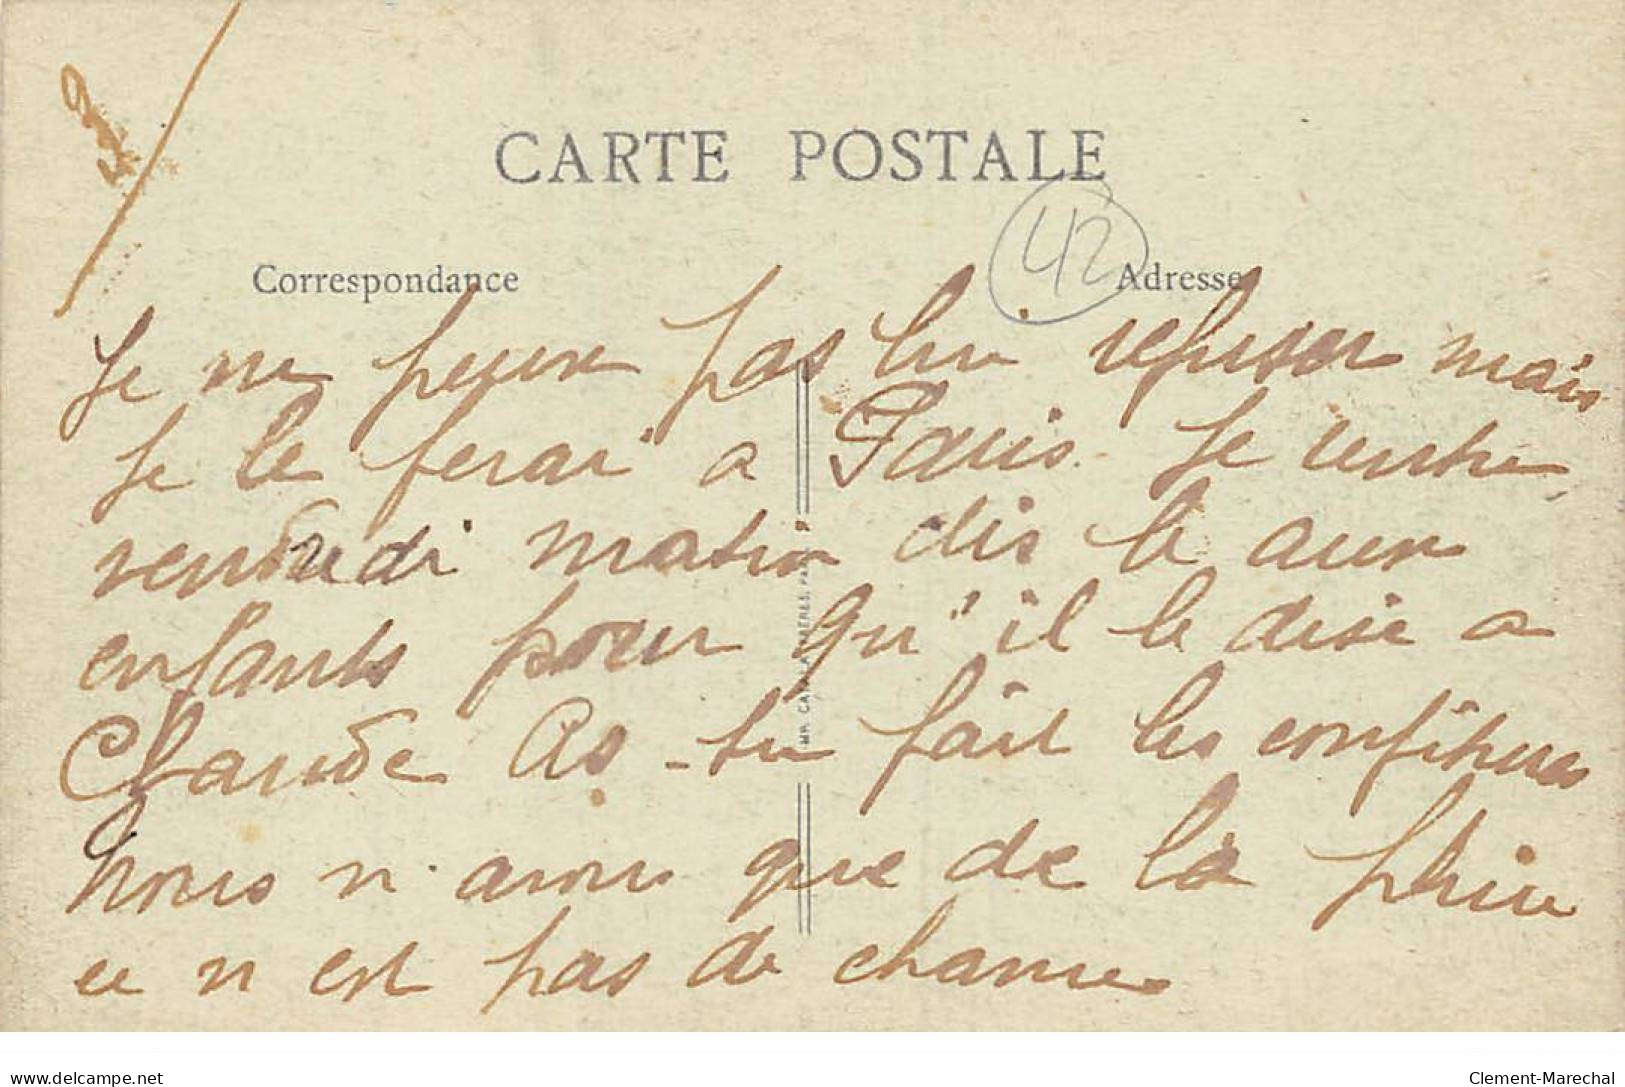 CARTE POSTALE
42
Correspondance Adresse
Je ne peux pas lui refuser mais
Je le ferai a Paris. Je rentre
vendredi matin dis le aux
enfants pour qu'il le dise a
Claude As-tu fait les confitures
nous n avons que de la pluie
ce n est pas de chance
delcampe.net
Clement-Marechal